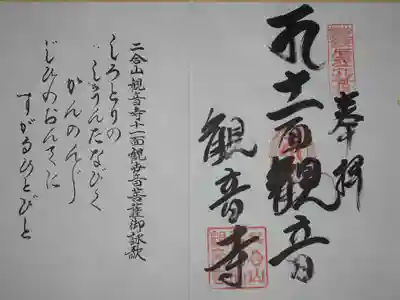 奉拝
十一面観音
観音寺
二合山観音寺十一面観世音菩薩御詠歌
しろとりの
ごしきうんたなびく
かんのんじ
じひのおんてに
すがるひとびと